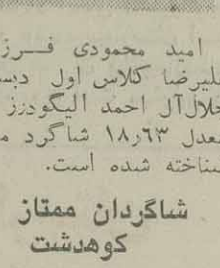 امید محمودی فـــرز
علیرضا کلاس اول دبس
جلال‌آل احمد الیگودرز
معدل ۱۸٫۶۳ شاگرد م
شناخته شده است.
شاگردان ممتاز
کوهدشت